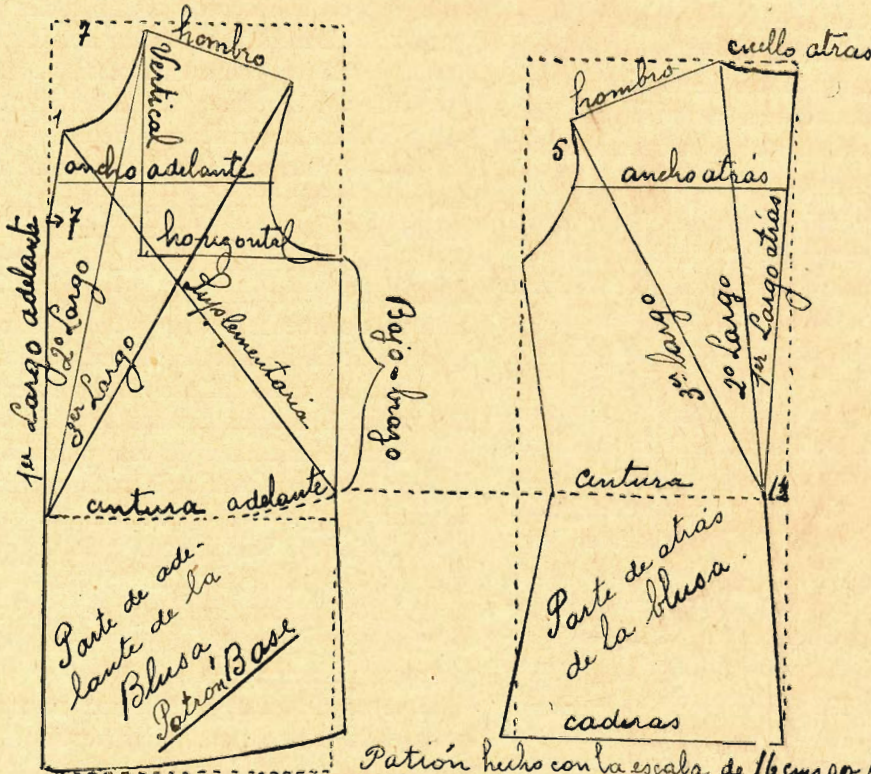 7
hombro
Vertical
1
ancho adelante
7
horizontal
1er Largo adelante
2º Largo
3er Largo
Suplementaria
Bajo=brazo
cintura adelante
Parte de ade-
lante de la
Blusa
Patrón Base
cuello atras
hombro
5
ancho atrás
3er largo
2º Largo
1er Largo atrás
cintura
Parte de atrás
de la blusa.
caderas
Patrón hecho con la escala de 16 cms por